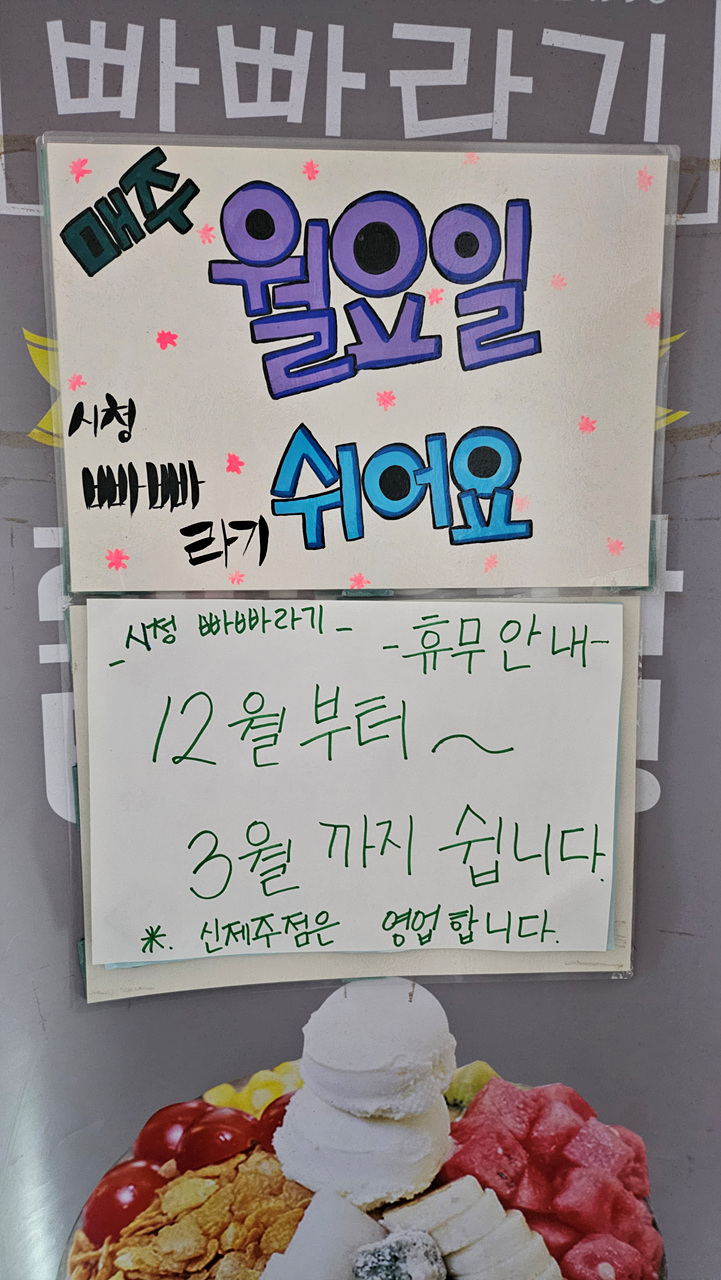 빠빠라기
매주
월요일
시청
빠빠
라기
쉬어요
- 시청 빠빠라기 -
- 휴무 안내 -
12월 부터 ~
3월 까지 쉽니다.
※. 신제주점은 영업합니다.